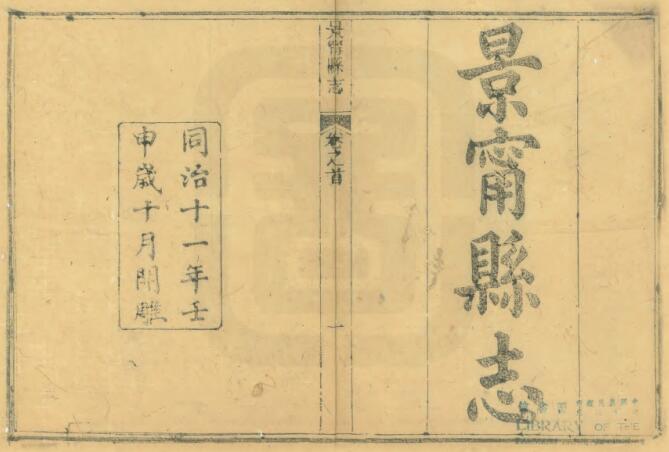 景甯縣志
景甯縣志
卷之首
一
同治十一年壬
申歲十月開雕
LIBRARY OF THE